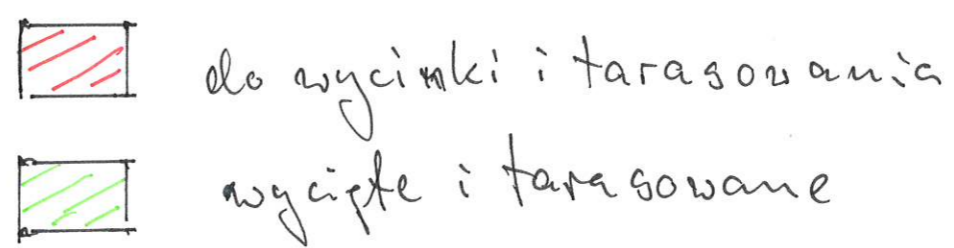 do wycinki i tarasowania
wycięte i tarasowane